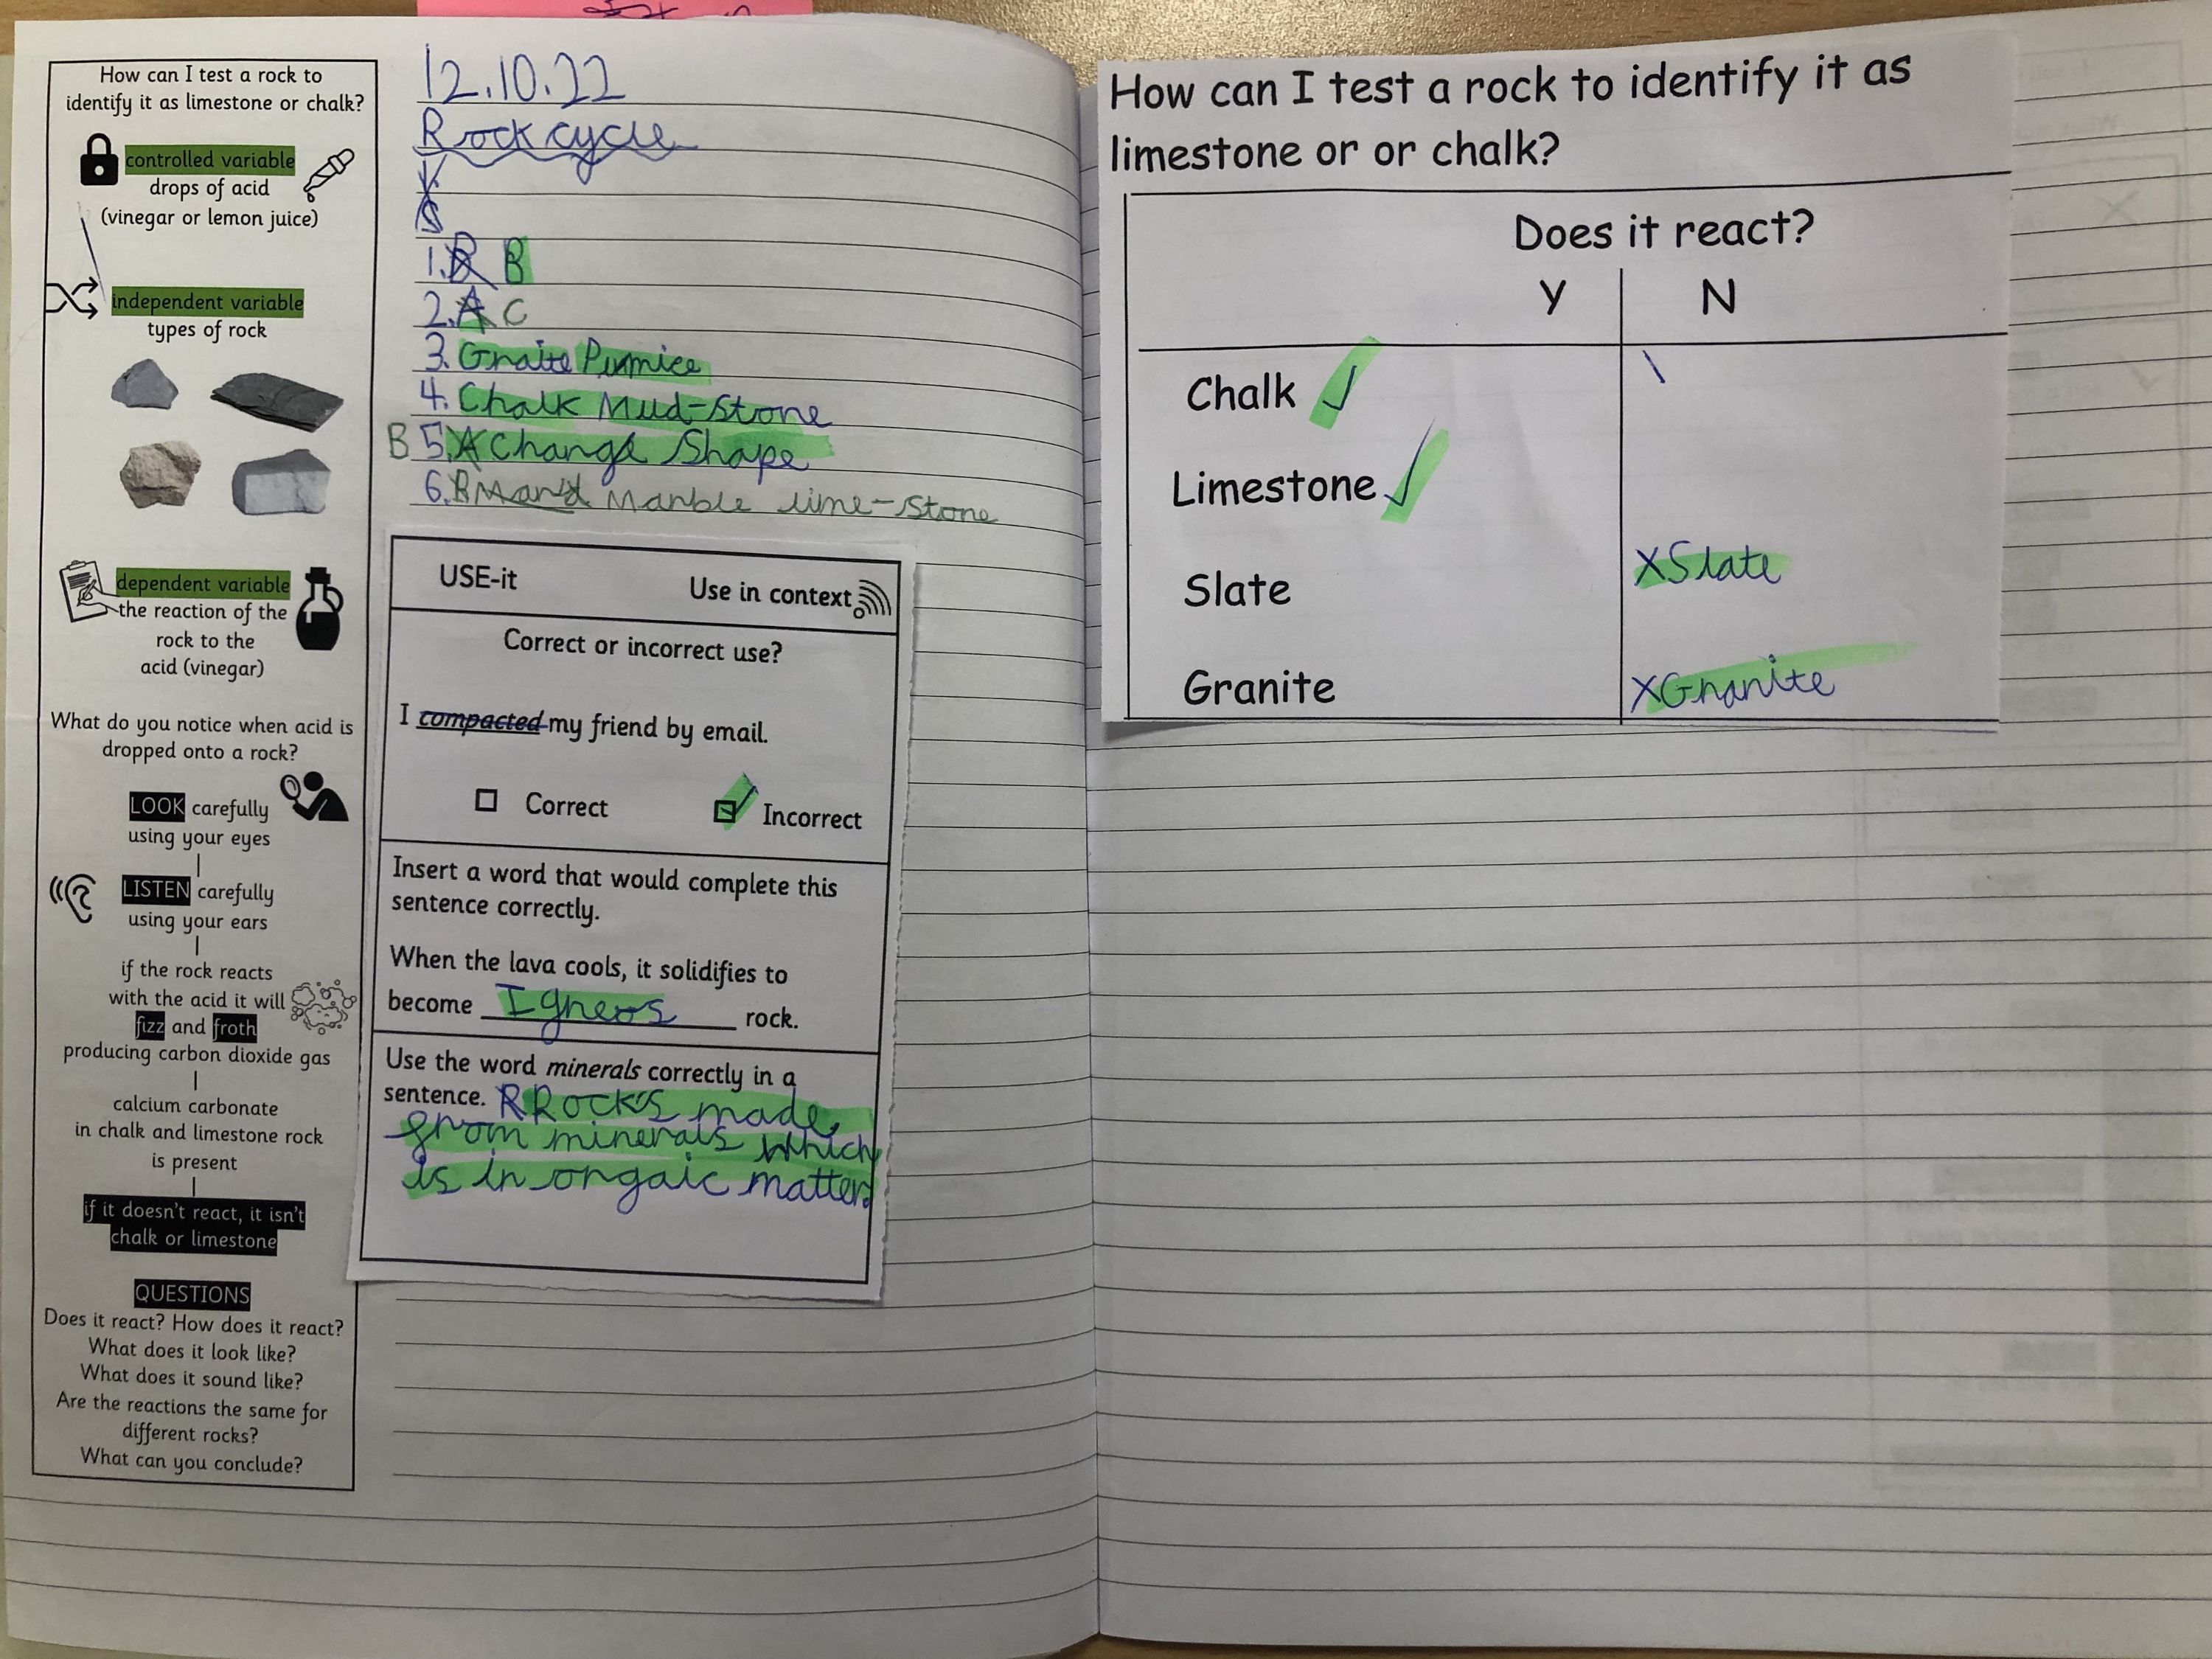 How can I test a rock to
identify it as limestone or chalk?
controlled variable
drops of acid
(vinegar or lemon juice)
independent variable
types of rock
dependent variable
the reaction of the
rock to the
acid (vinegar)
What do you notice when acid is
dropped onto a rock?
LOOK carefully
using your eyes
LISTEN carefully
using your ears
if the rock reacts
with the acid it will
fizz and froth
producing carbon dioxide gas
calcium carbonate
in chalk and limestone rock
is present
if it doesn't react, it isn't
chalk or limestone
QUESTIONS
Does it react? How does it react?
What does it look like?
What does it sound like?
Are the reactions the same for
different rocks?
What can you conclude?
12.10.22
Rock cycle
1. B
2. A C
3. Graite Pumice
4. Chalk Mud-stone
B 5. A Change Shape
6. Marble lime-stone
USE-it
Use in context
Correct or incorrect use?
I compacted my friend by email.
Correct
Incorrect
Insert a word that would complete this
sentence correctly.
When the lava cools, it solidifies to
become Igneos rock.
Use the word minerals correctly in a
sentence. R Rocks made
from minerals which
is in ongaic matter.
How can I test a rock to identify it as
limestone or or chalk?
Does it react?
Y N
Chalk ✓
Limestone ✓
Slate X Slate
Granite X Granite